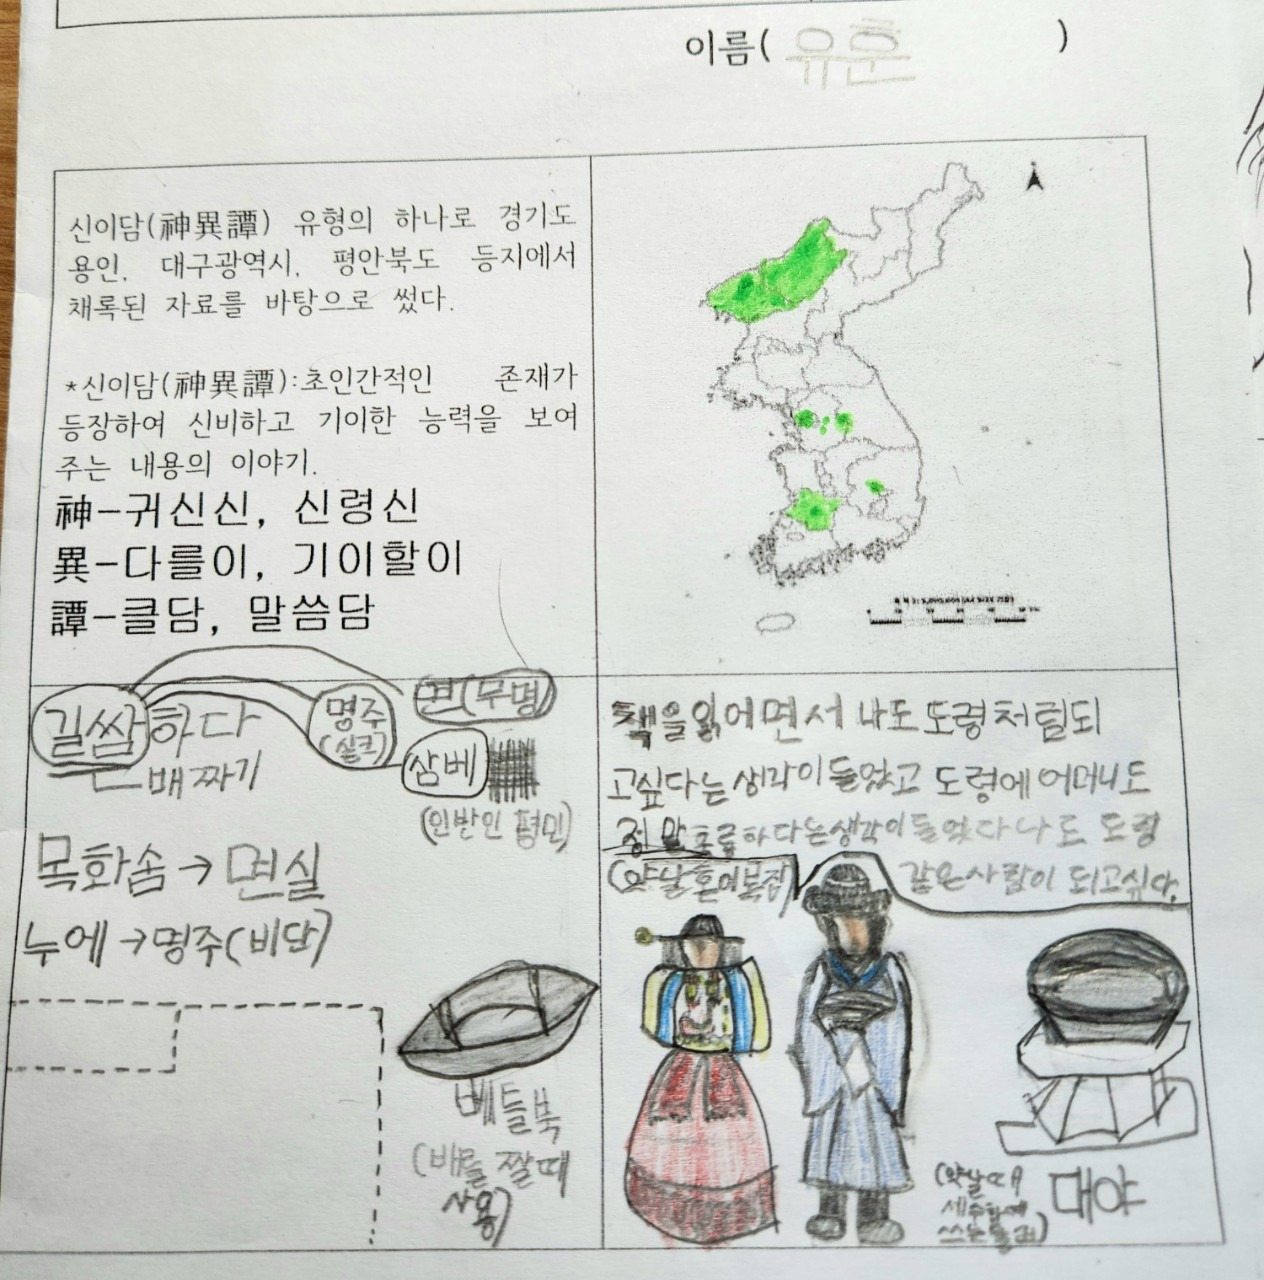 이름( 유훈 )
신이담(神異譚) 유형의 하나로 경기도
용인, 대구광역시, 평안북도 등지에서
채록된 자료를 바탕으로 썼다.
*신이담(神異譚):초인간적인 존재가
등장하여 신비하고 기이한 능력을 보여
주는 내용의 이야기.
神-귀신신, 신령신
異-다를이, 기이할이
譚-클담, 말씀담
길쌈하다
배짜기
명주
(실크)
면(무명)
삼베
(일반인 평민)
목화솜→면실
누에→명주(비단)
베틀북
(베를 짤때
사용)
책을읽어면서 나도 도령처럼되
고싶다는생각이들었고 도령에어머니도
정말훌륭하다는생각이들었다나도 도령
같은사람이 되고싶다.
(옛날혼례복장)
대야
(옛날때
세수할때
쓰는물건)